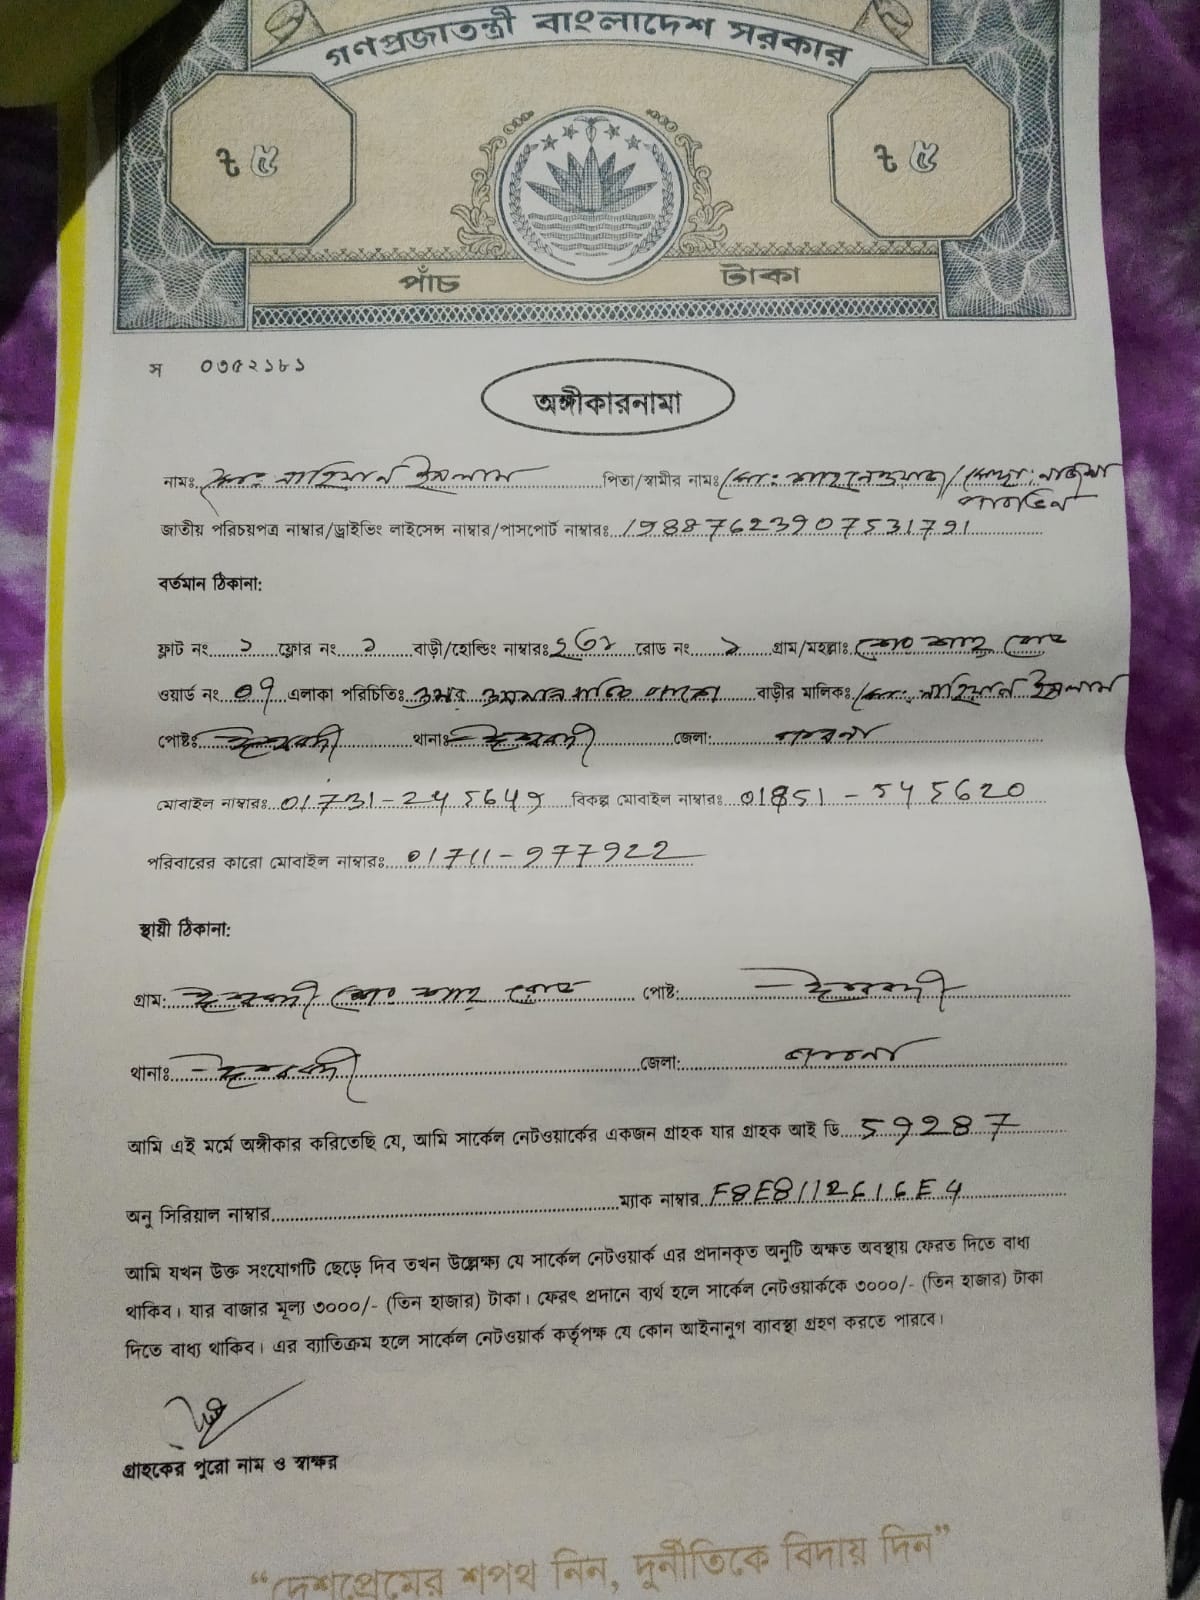 গণপ্রজাতন্ত্রী বাংলাদেশ সরকার
৳ ৫ ৳ ৫
পাঁচ টাকা
স ০৩৫২১৮১
অঙ্গীকারনামা
নামঃ মোঃ নাহিয়ান ইসলাম পিতা/স্বামীর নামঃ মোঃ শাহনেওয়াজ/মোছাঃ নাজমা
পারভিন
জাতীয় পরিচয়পত্র নাম্বার/ড্রাইভিং লাইসেন্স নাম্বার/পাসপোর্ট নাম্বারঃ 19887623907531791
বর্তমান ঠিকানা:
ফ্লাট নং ১ ফ্লোর নং ১ বাড়ী/হোল্ডিং নাম্বারঃ রোড নং ১ গ্রাম/মহল্লাঃ শের শাহ্ রোড
ওয়ার্ড নং ০৭ এলাকা পরিচিতিঃ বাড়ীর মালিকঃ মোঃ নাহিয়ান ইসলাম
পোষ্টঃ ঈশ্বরদী থানাঃ ঈশ্বরদী জেলা: পাবনা
মোবাইল নাম্বারঃ 01731-245649 বিকল্প মোবাইল নাম্বারঃ 01851-545620
পরিবারের কারো মোবাইল নাম্বারঃ 01711-977922
স্থায়ী ঠিকানা:
গ্রাম: ঈশ্বরদী শের শাহ্ রোড পোষ্ট: ঈশ্বরদী
থানাঃ ঈশ্বরদী জেলা: পাবনা
আমি এই মর্মে অঙ্গীকার করিতেছি যে, আমি সার্কেল নেটওয়ার্কের একজন গ্রাহক যার গ্রাহক আই ডি 59287
অনু সিরিয়াল নাম্বার ম্যাক নাম্বার F8E8112616E4
আমি যখন উক্ত সংযোগটি ছেড়ে দিব তখন উল্লেক্ষ্য যে সার্কেল নেটওয়ার্ক এর প্রদানকৃত অনুটি অক্ষত অবস্থায় ফেরত দিতে বাধ্য
থাকিব। যার বাজার মূল্য ৩০০০/- (তিন হাজার) টাকা। ফেরৎ প্রদানে ব্যর্থ হলে সার্কেল নেটওয়ার্ককে ৩০০০/- (তিন হাজার) টাকা
দিতে বাধ্য থাকিব। এর ব্যাতিক্রম হলে সার্কেল নেটওয়ার্ক কর্তৃপক্ষ যে কোন আইনানুগ ব্যাবস্থা গ্রহণ করতে পারবে।
গ্রাহকের পুরো নাম ও স্বাক্ষর
“দেশপ্রেমের শপথ নিন, দুর্নীতিকে বিদায় দিন”